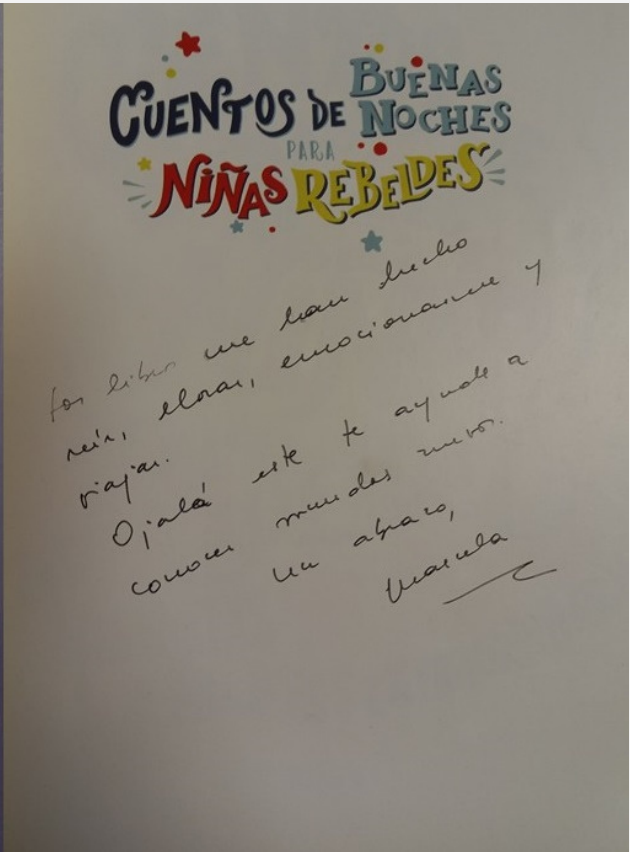 CUENTOS DE BUENAS NOCHES
PARA
NIÑAS REBELDES
Los libros me han hecho
reír, llorar, emocionarme y
viajar.
Ojalá este te ayude a
conocer mundos nuevos.
Un abrazo,